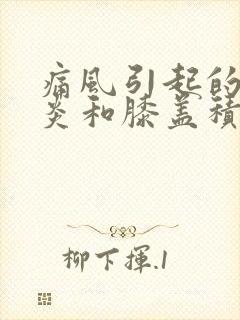 痛风引起的
炎和膝盖積
柳下揮.1